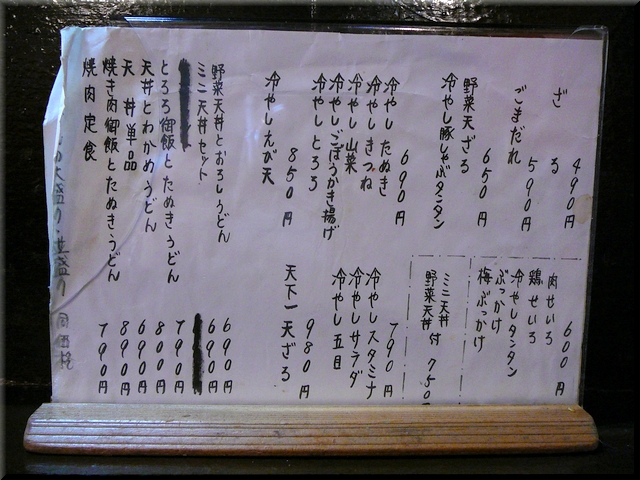 ざる 490円
ごまだれ 590円
野菜天ざる 650円
冷やし豚しゃぶタンタン
冷やしたぬき 690円
冷やしきつね
冷やし山菜
冷やしごぼうかき揚げ
冷やしとろろ
冷やしえび天 850円
肉せいろ 600円
鶏せいろ
冷やしタンタン
ぶっかけ
梅ぶっかけ
ミニ天丼
野菜天丼 付 750円
冷やしスタミナ 790円
冷やしサラダ
冷やし五目
天下一天ざる 980円
野菜天丼とおろしうどん 690円
ミニ天丼セット 690円
とろろ御飯とたぬきうどん 790円
天丼とわかめうどん 800円
天丼単品 690円
焼き肉御飯とたぬきうどん 890円
焼肉定食 790円
大盛り・並盛り 同価格